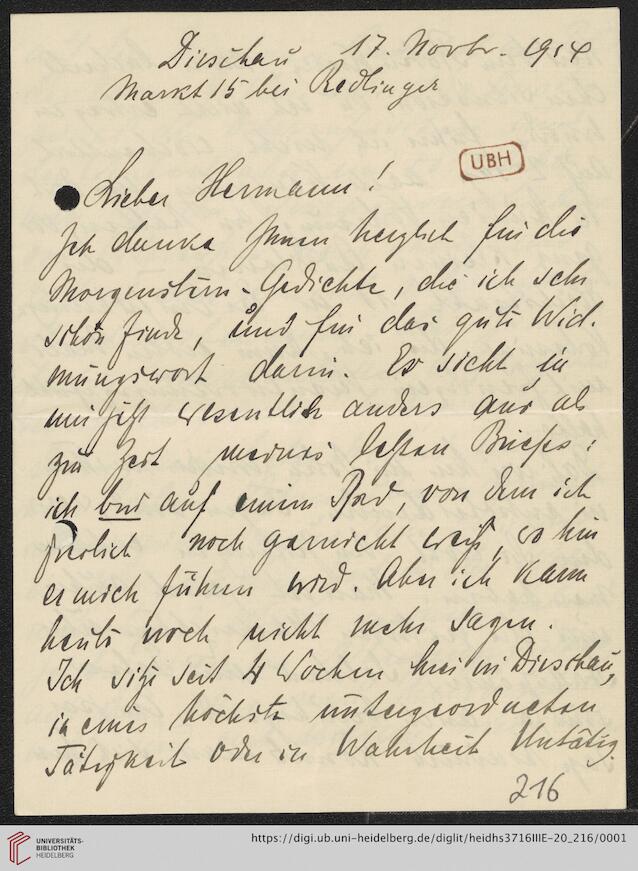 Dirschau 17. Novbr. 1914
Markt 15 bei Redlinger
UBH
Lieber Hermann!
Ich danke Ihnen herzlich für die
Morgenstern-Gedichte, die ich sehr
schön finde, und für das gute Wid-
mungswort darin. Es sieht in
mir jetzt wesentlich anders aus als
zur Zeit meines letzten Briefes:
ich bin auf einem Pfad, von dem ich
freilich noch garnicht weiß, wohin
er mich führen wird. Aber ich kann
heute noch nicht mehr sagen.
Ich sitze seit 4 Wochen hier in Dirschau,
in einer höchst untergeordneten
Tätigkeit oder in Wahrheit Untätig
216
UNIVERSITÄTS-
BIBLIOTHEK
HEIDELBERG
https://digi.ub.uni-heidelberg.de/diglit/heidhs3716IIIE-20_216/0001